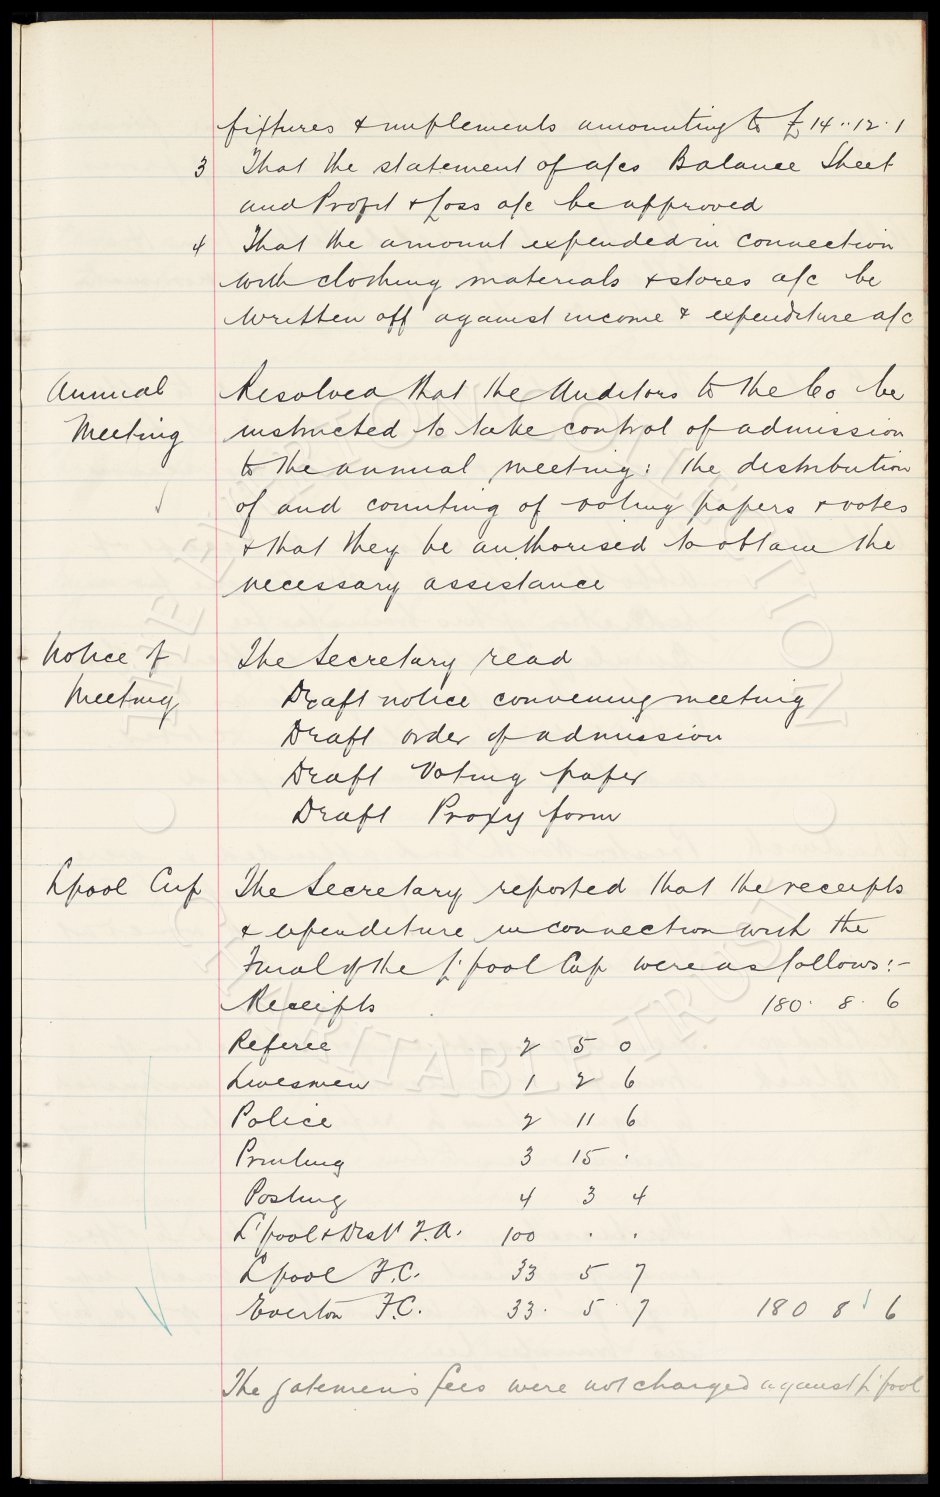 fixtures & implements amounting to £14..12.1
3 That the statement of a/cs Balance Sheet
and Profit & Loss a/c be approved
4 That the amount expended in connection
with clothing materials & stores a/c be
written off against income & expenditure a/c
Annual Meeting
Resolved that the Auditors to the Co be
instructed to take control of admission
to the annual meeting: the distribution
of and counting of voting papers & votes
& that they be authorised to obtain the
necessary assistance
Notice of Meeting
The Secretary read
Draft notice convening meeting
Draft order of admission
Draft Voting paper
Draft Proxy form
Lpool Cup
The Secretary reported that the receipts
& expenditure in connection with the
Final of the L'pool Cup were as follows:-
Receipts 180. 8. 6
Referee 2 5 0
Linesmen 1 2 6
Police 2 11 6
Printing 3 15 .
Posting 4 3 4
L'pool & Dist F.A. 100 . .
Lpool F.C. 33 5 7
Everton F.C. 33. 5 7 180 8 6
The gatemen's fees were not charged against L'pool
THE EVERTON COLLECTION
CHARITABLE TRUST